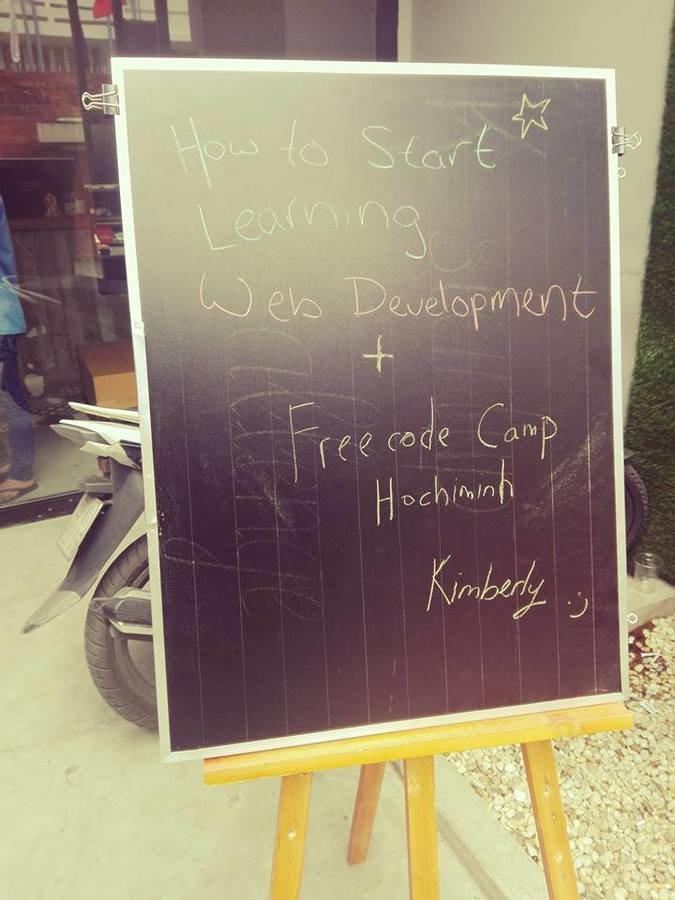 How to Start
Learning
Web Development
+
Freecode Camp
Hochiminh
Kimberly :)